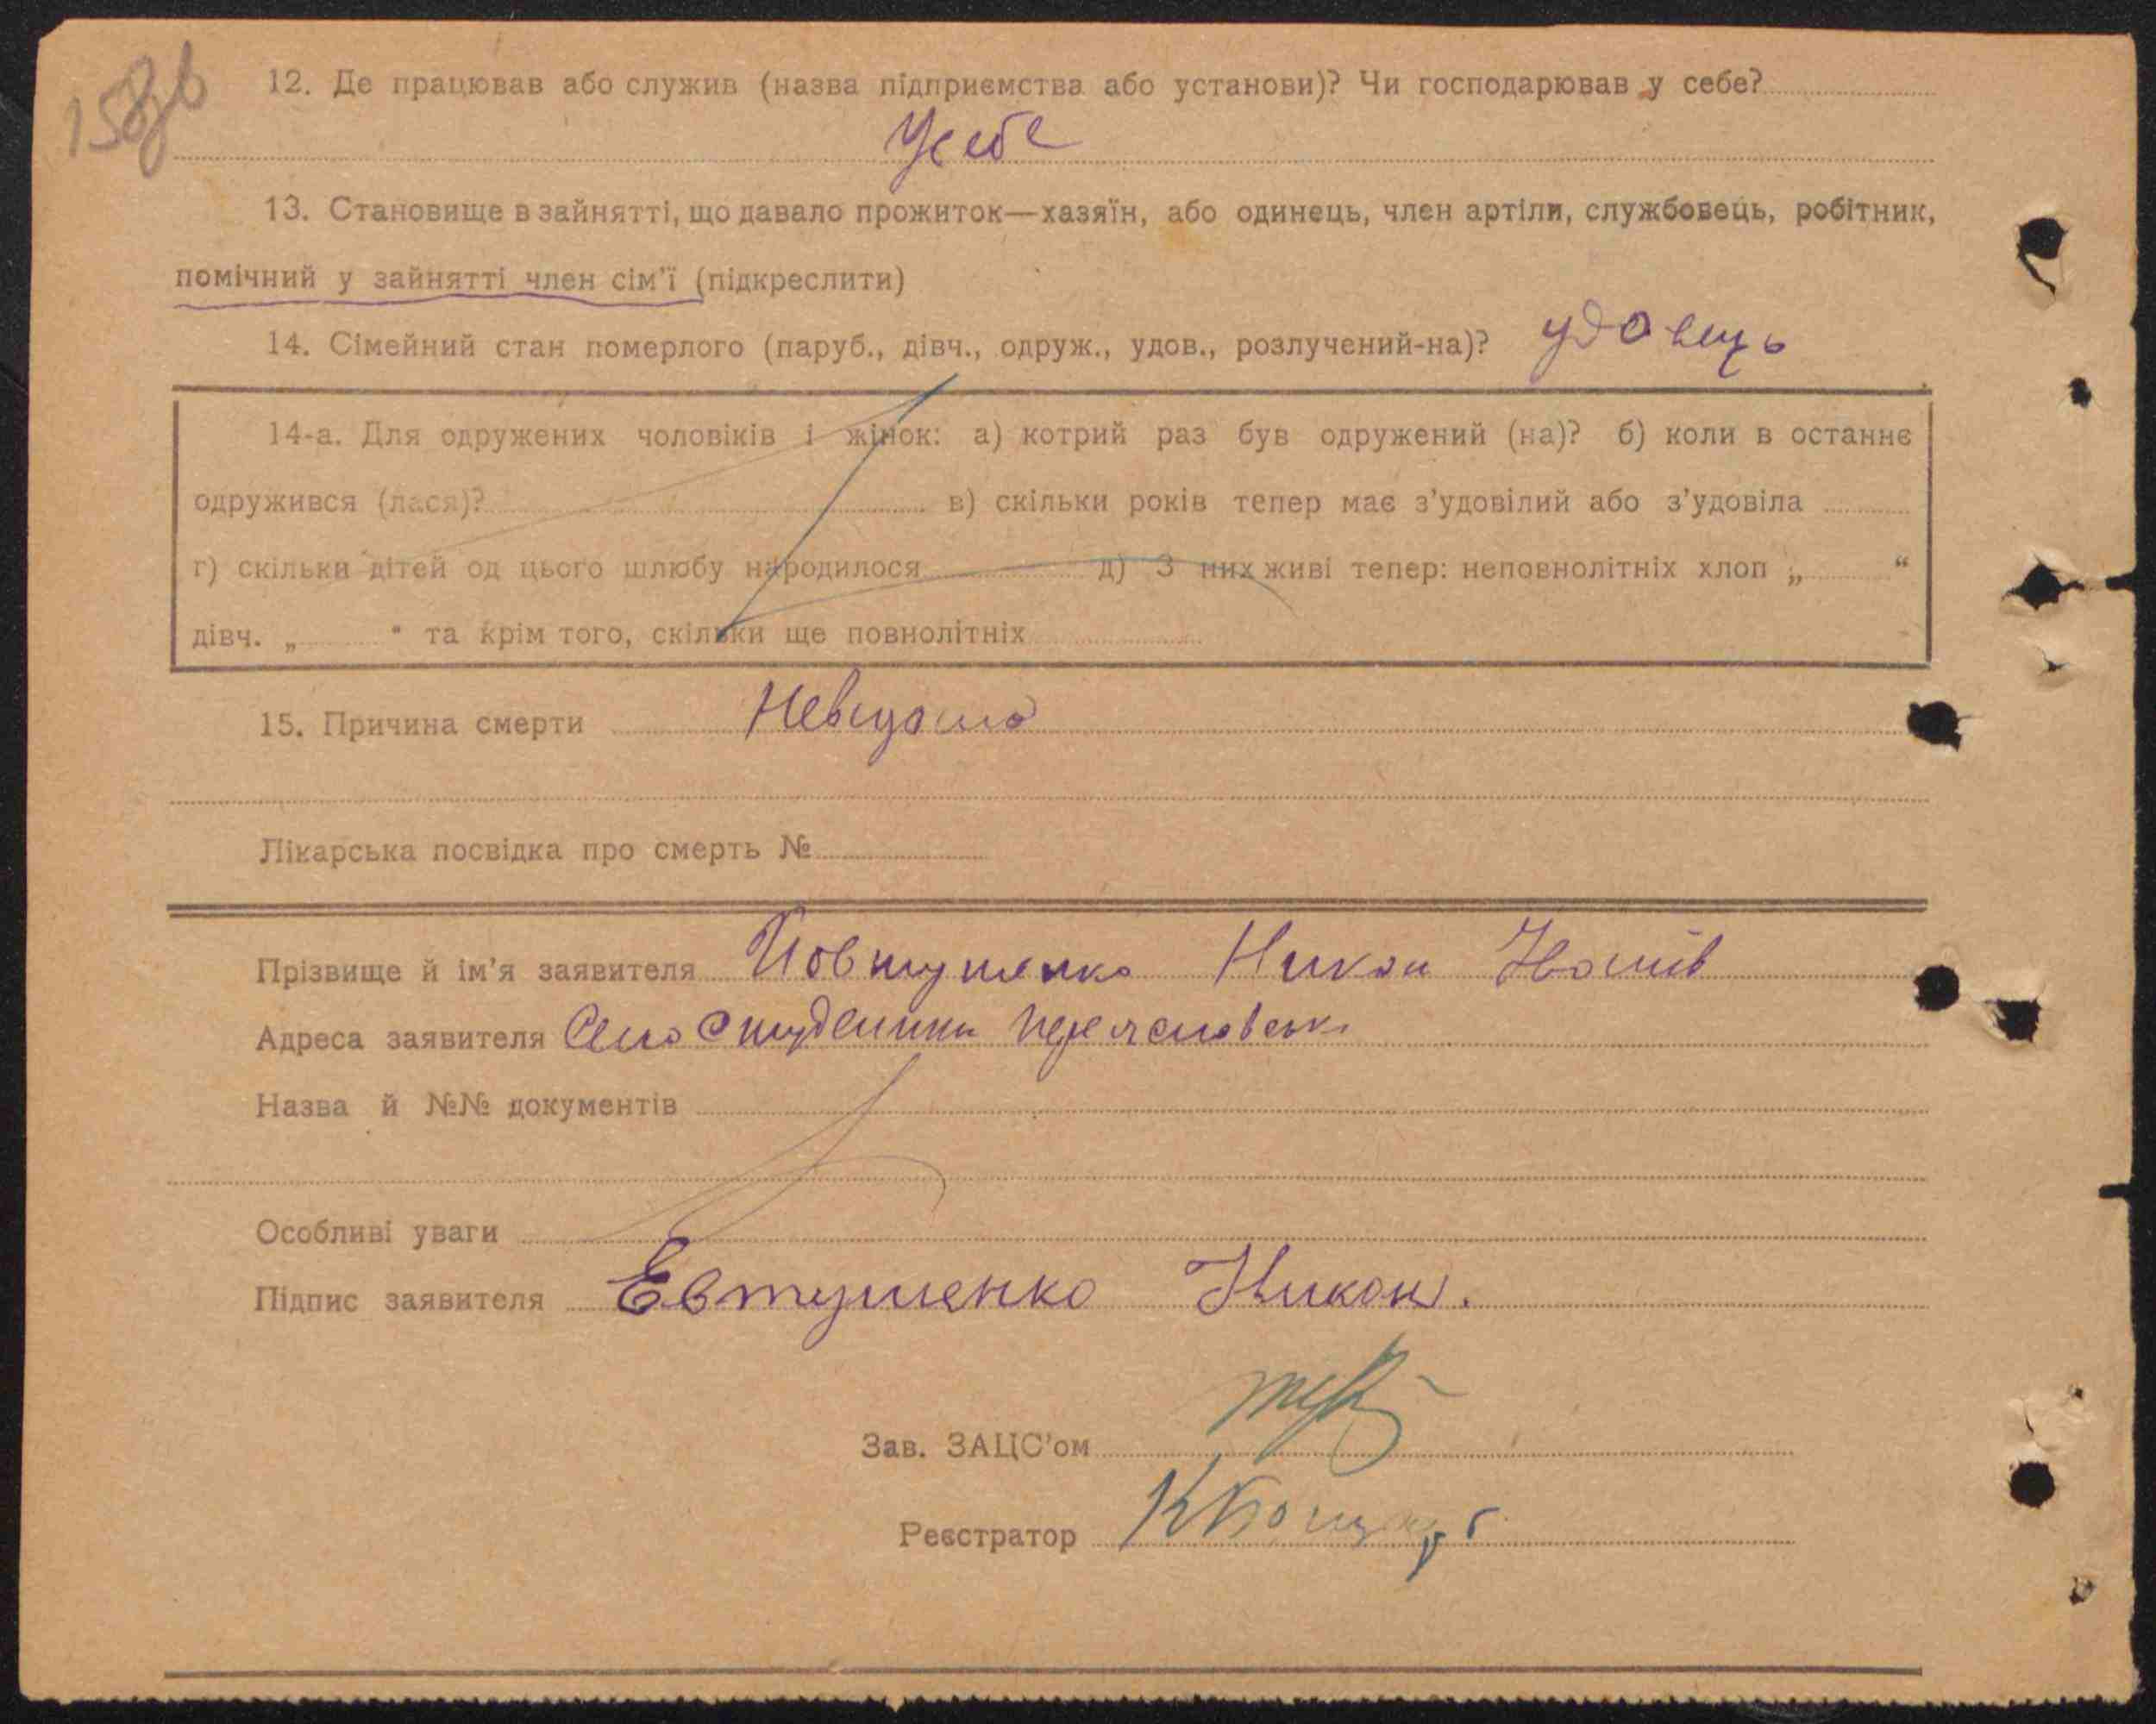 158зв
12. Де працював або служив (назва підприємства або установи)? Чи господарював у себе?
Усебе
13. Становище в зайнятті, що давало прожиток—хазяїн, або одинець, член артіли, службовець, робітник,
помічний у зайнятті член сім'ї (підкреслити)
14. Сімейний стан померлого (паруб., дівч., одруж., удов., розлучений-на)? удовець
14-а. Для одружених чоловіків і жінок: а) котрий раз був одружений (на)? б) коли в останнє
одружився (лася)? в) скільки років тепер має з'удовілий або з'удовіла
г) скільки дітей од цього шлюбу народилося д) З них живі тепер: неповнолітніх хлоп „ “
дівч. „ “ та крім того, скільки ще повнолітніх
15. Причина смерти Невідомо
Лікарська посвідка про смерть №
Прізвище й ім'я заявителя Йовтушенко Никон
Адреса заявителя Село Студеники
Назва й №№ документів
Особливі уваги
Підпис заявителя Евтушенко Никон.
Зав. ЗАЦС'ом
Реєстратор